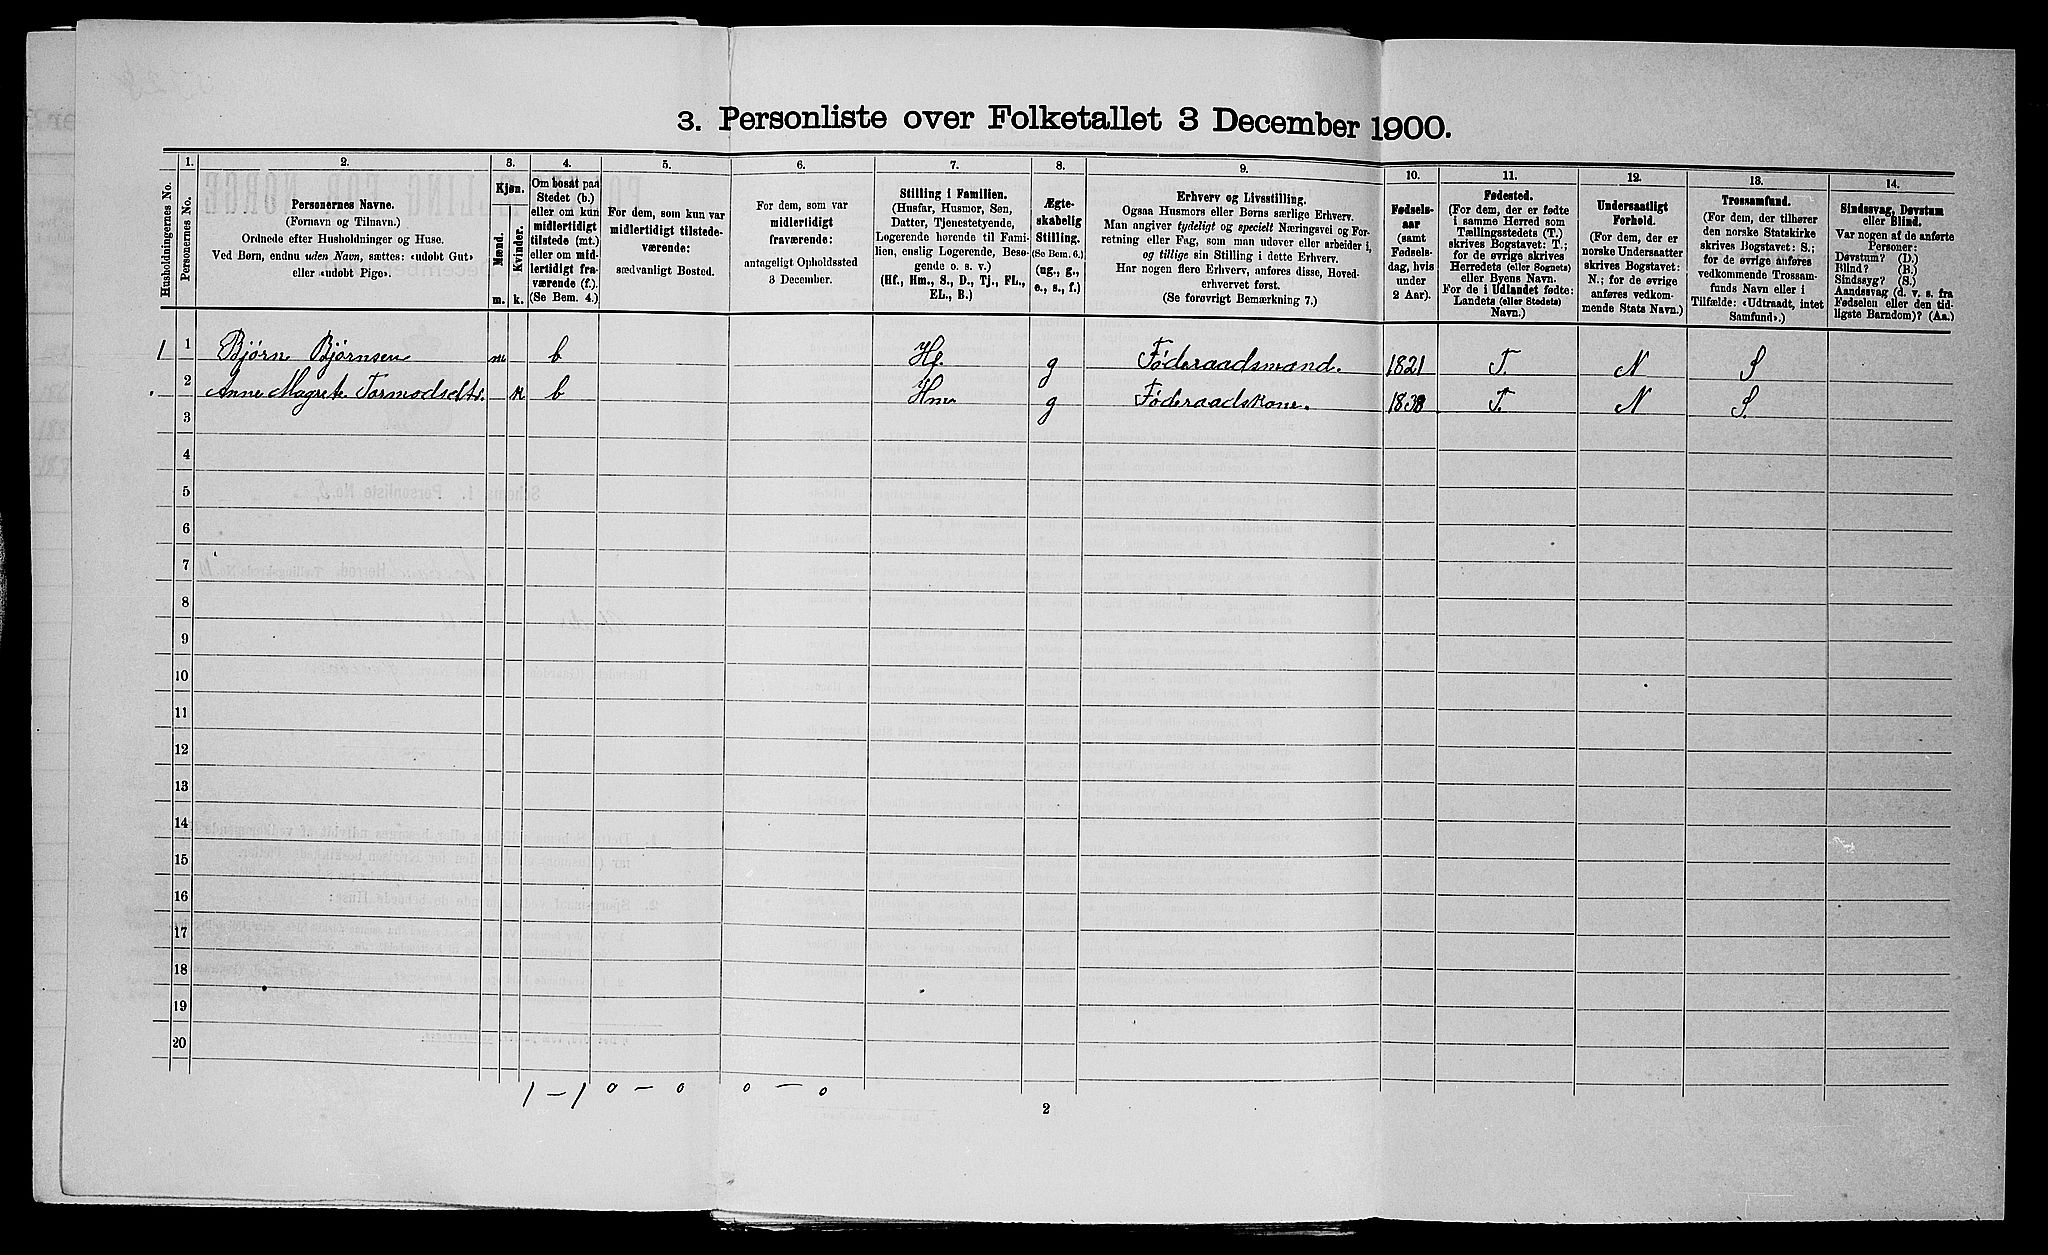 3. Personliste over Folketallet 3 December 1900.
Husholdningernes No.
1.
Personernes No.
2.
Personernes Navne.
(Fornavn og Tilnavn.)
Ordnede efter Husholdninger og Huse.
Ved Børn, endnu uden Navn, sættes: «udøbt Gut»
eller «udøbt Pige».
3.
Kjøn.
Mænd.
Kvinder.
m.
k.
4.
Om bosat paa
Stedet (b.)
eller om kun
midlertidigt
tilstede (mt.)
eller om mid-
lertidigt fra-
værende (f.).
(Se Bem. 4.)
5.
For dem, som kun var
midlertidigt tilstede-
værende:
sædvanligt Bosted.
6.
For dem, som var
midlertidigt
fraværende:
antageligt Opholdssted
3 December.
7.
Stilling i Familien.
(Husfar, Husmor, Søn,
Datter, Tjenestetyende,
Løgerende hørende til Fami-
lien, enslig Løgerende, Besø-
gende o. s. v.)
(Hf., Hm., S., D., Tj., FL.,
EL., B.)
8.
Ægte-
skabelig
Stilling.
(Se Bem. 6.)
(ug., g.,
e., s., f.)
9.
Erhverv og Livsstilling.
Ogsaa Husmors eller Børns særlige Erhverv.
Man angiver tydeligt og specielt Næringsvei og For-
retning eller Fag, som man udøver eller arbeider i,
og tillige sin Stilling i dette Erhverv.
Har nogen flere Erhverv, anføres disse, Hoved-
erhvervet først.
(Se forøvrigt Bemærkning 7.)
10.
Fødsels-
aar
(samt
Fødsels-
dag, hvis
under
2 Aar).
11.
Fødested.
(For dem, der er fødte
i samme Herred som
Tællingsstedets (T.)
skrives Bogstavet: T.;
for de øvrige skrives
Herredets (eller Sognets)
eller Byens Navn.
For de i Udlandet fødte:
Landets (eller Stedets)
Navn.)
12.
Undersaatligt
Forhold.
(For dem, der er
norske Undersaatter
skrives Bogstavet:
N.; for de øvrige
anføres vedkom-
mende Stats Navn.)
13.
Trossamfund.
(For dem, der tilhører
den norske Statskirke
skrives Bogstavet: S.;
for de øvrige anføres
vedkommende Trossam-
funds Navn eller i
Tilfælde: «Udtraadt, intet
Samfund».)
14.
Sindssvag, Døvstum
eller Blind.
Var nogen af de anførte
Personer:
Døvstum? (D.)
Blind? (B.)
Sindssyg? (S.)
Aandssvag (d. v. s. fra
Fødselen eller den tid-
ligste Barndom)? (Aa.)
1 1 Bjørn Bjørnsen m b Hf. g Føderaadsmand. 1821 T. N S
2 Anne Magrete Tormodsdtr. k b Hm g Føderaadskone. 1838 T. N S.
3
4
5
6
7
8
9
10
11
12
13
14
15
16
17
18
19
20
1 – 1 0 – 0 0 – 0
2